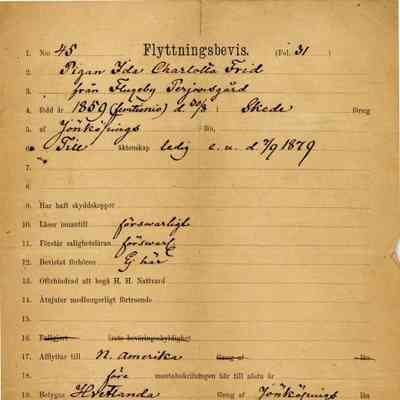 1. No: 45 Flyttningsbevis. (Fol. 31)
2. Pigan Ida Charlotta Frid
3. från Flugeby Personsgård
4. född år 1859 d 30/8 i Skede förs:g
5. af Jönköpings län,
6. Till äktenskap ledig e. u. d 7/9 1879
7.
8.
9. Har haft skyddskoppor
10. Läser innantill försvarligt
11. Förstår salighetsläran försvarl
12. Bevistat förhören Ej här
13. Oförhindrad att begå H. H. Nattvard
14. Åtnjuter medborgerligt förtroende
15.
16. Fullgjort årets beväringsskyldighet
17. Afflyttar till N. Amerika förs:g af län
18. före mantalsskrifningen här till nästa år
19. Betygas Hvetlanda förs:g af Jönköpings län